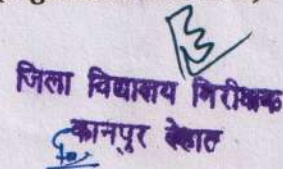 जिला विद्यालय निरीक्षक
कानपुर देहात